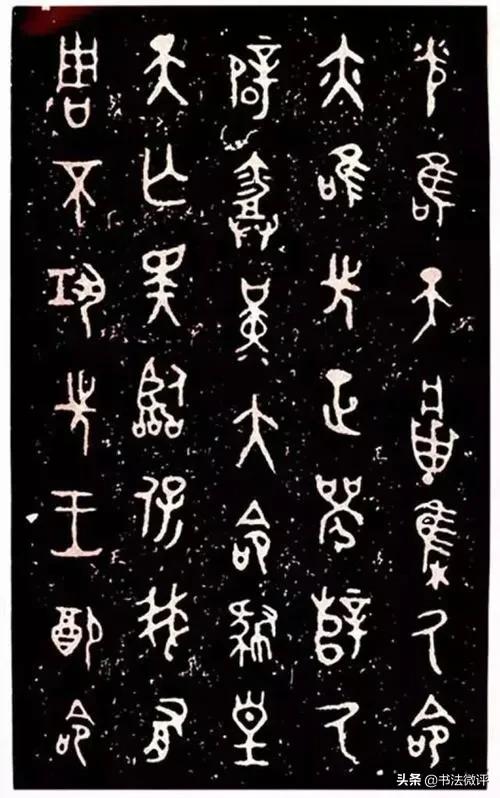 光唯天𤖕集厥命
亦唯先正襄辥厥
辟𢍰堇大命肆皇
天亡斁臨保我有
周不巩先王配命
头条 @书法微评